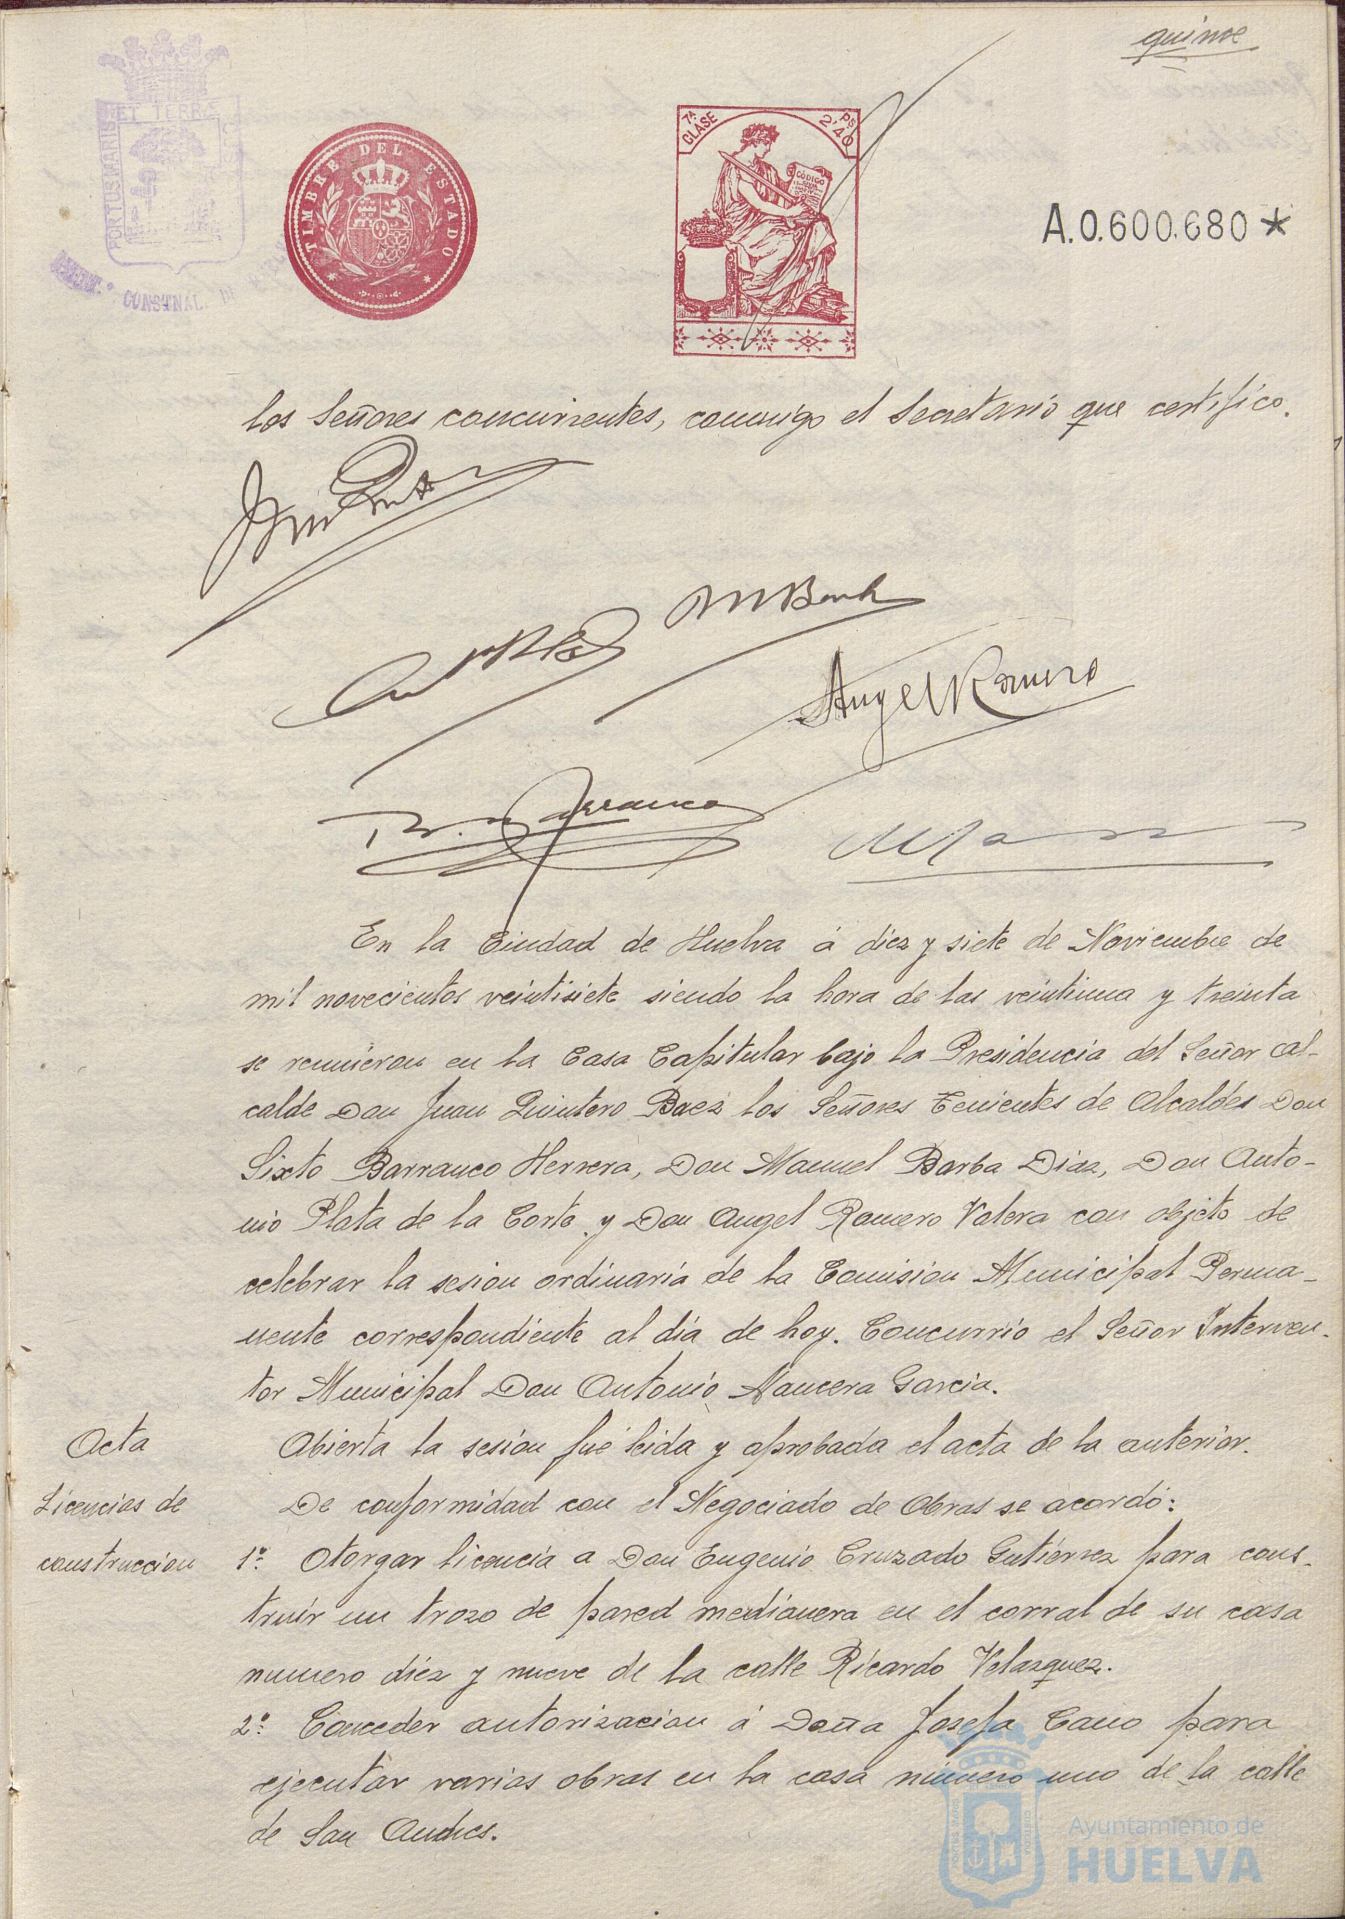 quince
PORTUS MARIS ET TERRÆ CUSTOS
CONSTNAL. DE
TIMBRE DEL ESTADO
7ª CLASE
PS 2'40
CÓDIGO
A.0.600.680*
los Señores concurrentes, conmigo el Secretario que certifico.
Angel Romero
En la Ciudad de Huelva á diez y siete de Noviembre de
mil novecientos veintisiete siendo la hora de las veintiuna y treinta
se reunieron en la Casa Capitular bajo la Presidencia del Señor Al-
calde Don Juan Quintero Baez los Señores Tenientes de Alcaldes Don
Sixto Barranco Herrera, Don Manuel Barba Diaz, Don Anto-
nio Plata de la Corte y Don Angel Romero Valera con objeto de
celebrar la sesion ordinaria de la Comision Municipal Perma-
nente correspondiente al dia de hoy. Concurrió el Señor Interven-
tor Municipal Don Antonio Mancera Garcia.
Acta
Abierta la sesion fué leida y aprobada el acta de la anterior.
Licencias de
construccion
De conformidad con el Negociado de Obras se acordó:
1º Otorgar licencia a Don Eugenio Cruzado Gutiérrez para cons-
truir un trozo de pared medianera en el corral de su casa
numero diez y nueve de la calle Ricardo Velazquez.
2º Conceder autorizacion á Doña Josefa Cano para
ejecutar varias obras en la casa número uno de la calle
de San Andres.
Ayuntamiento de
HUELVA